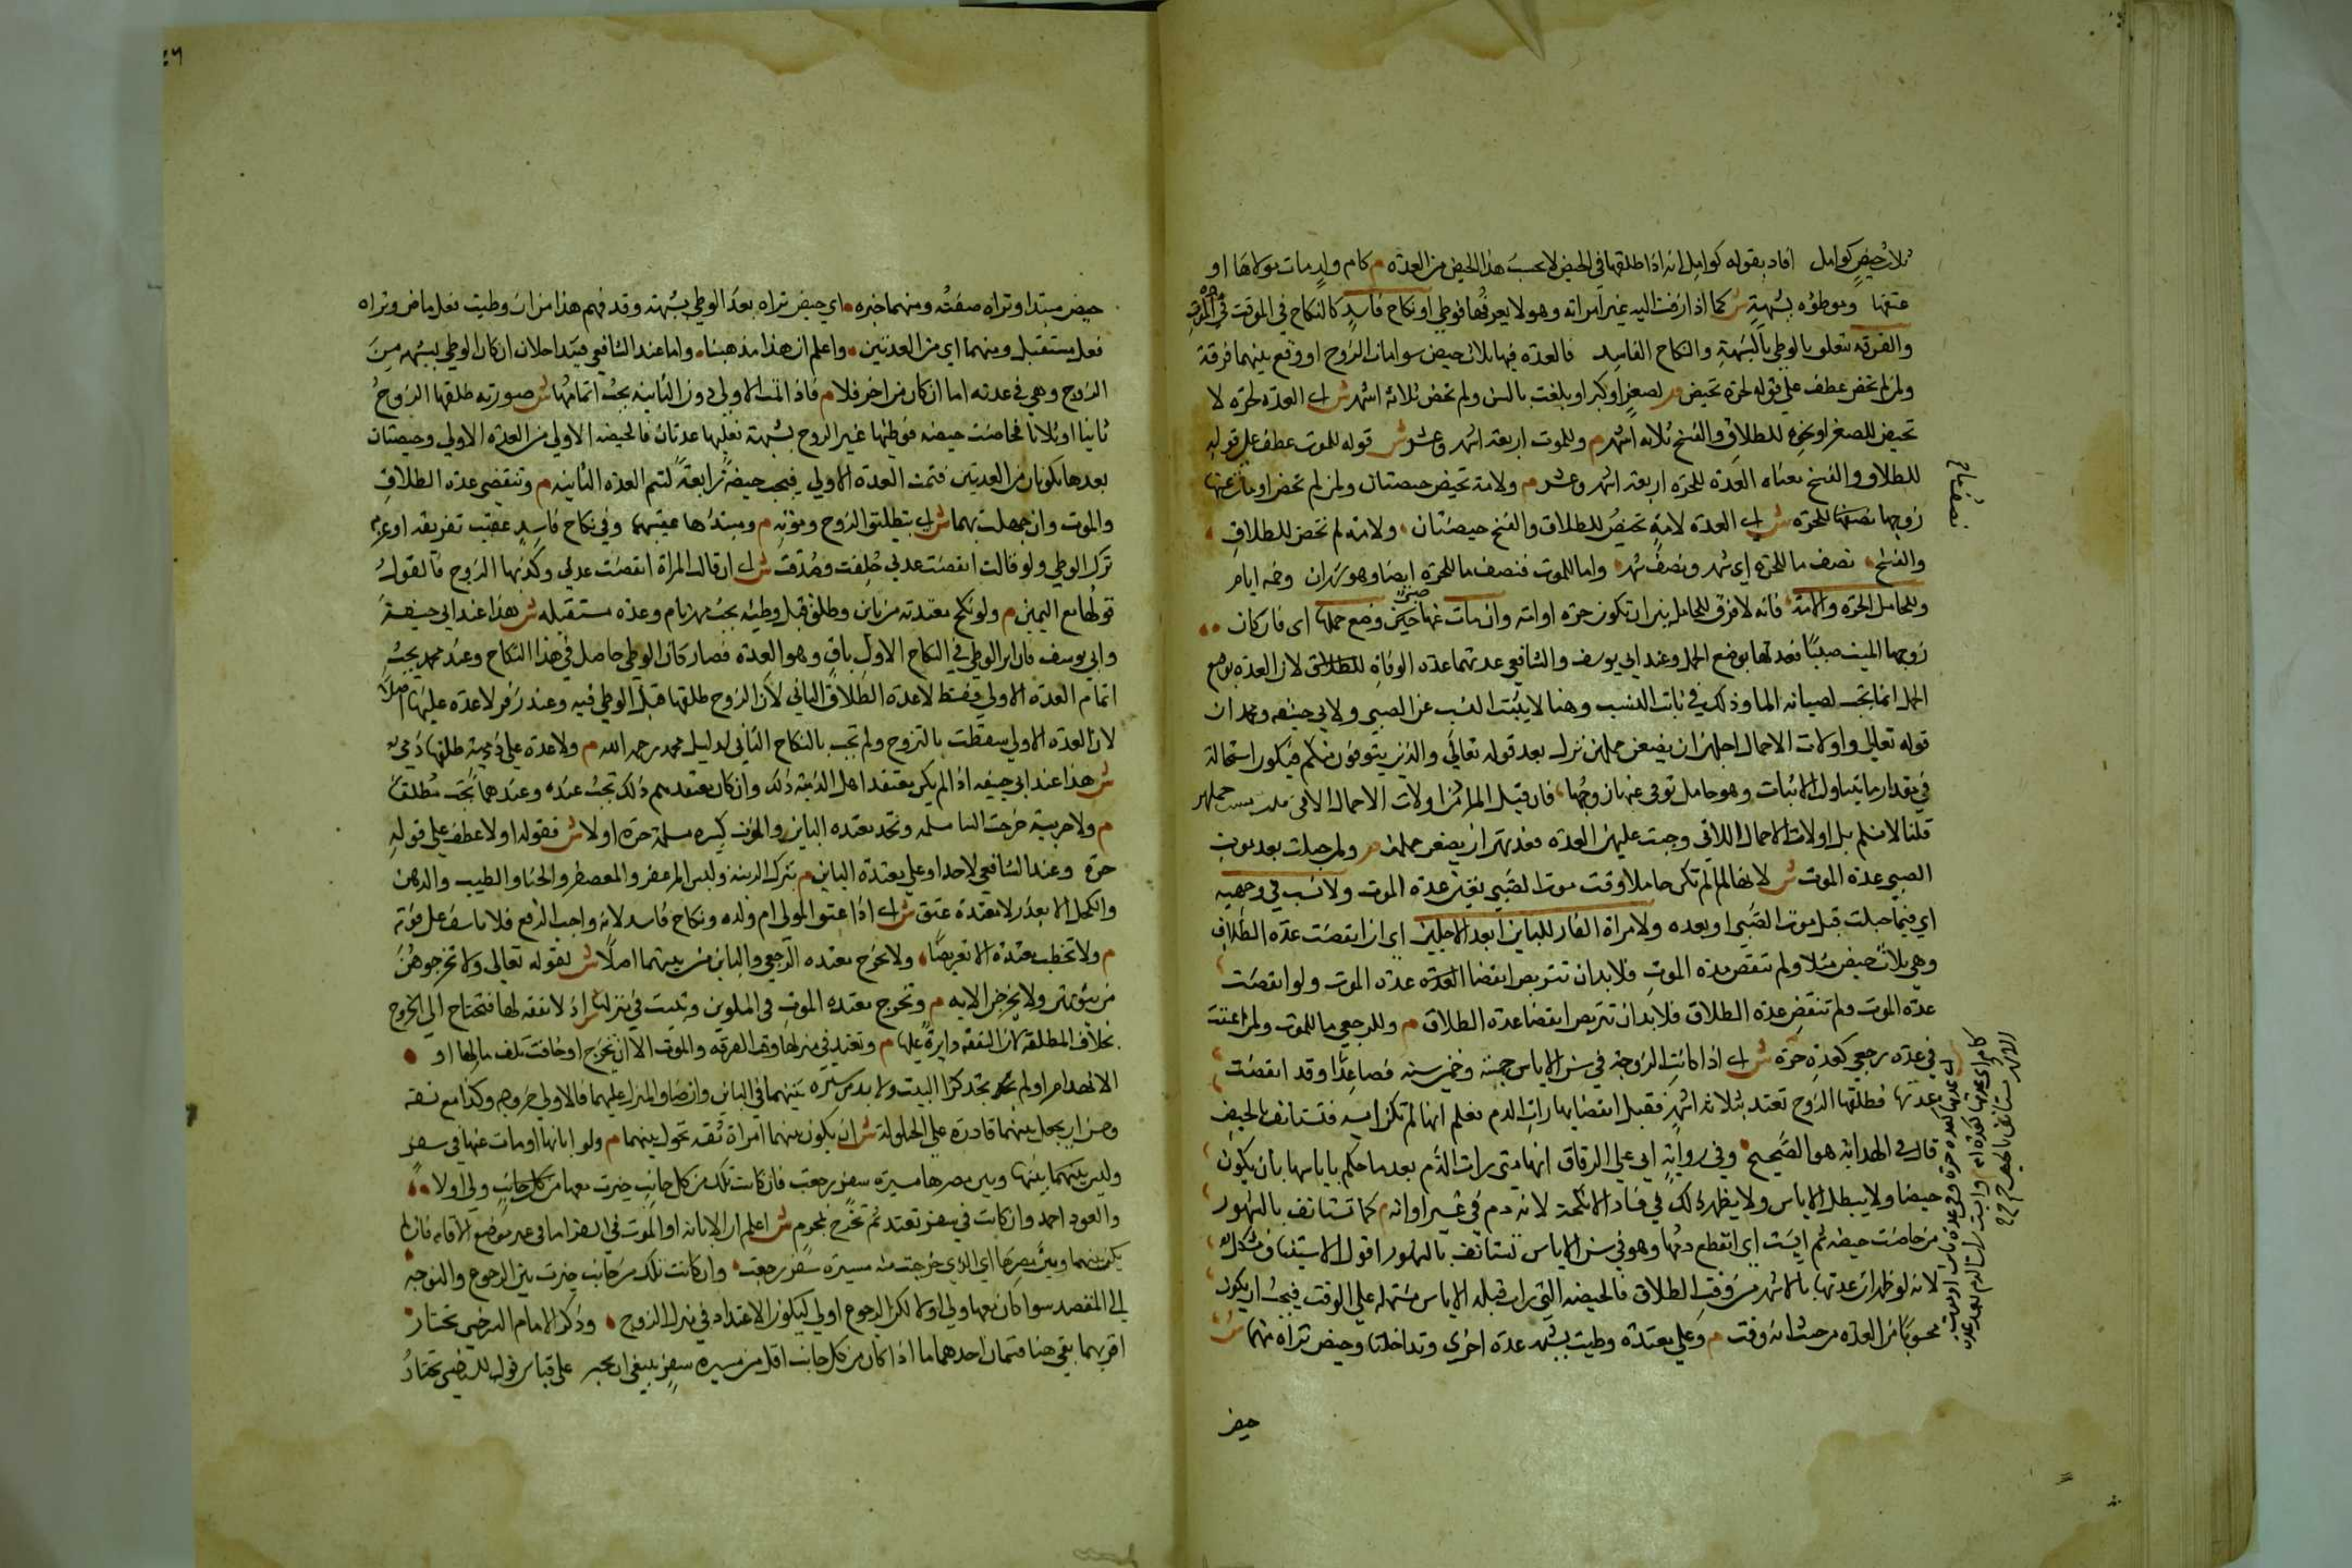 ثلاث حيض كوامل افاد بقوله كوامل انه اذا طلقها في الحيض لا يحسب هذا الحيض من العدة م كام ولد مات مولاها او
عتقها وموطؤه بشبهة ش كما اذا زفت اليه غير امراته وهو لا يعرفها فوطي او نكاح فاسد كالنكاح في الموقت في الموت
والفرقة تتعلق بالوطي بالشبهة والنكاح الفاسد فالعدة فيها ثلاث حيض سوا مات الزوج او وقع بينهما فرقة
ولمن لم تحض عطف علي قوله لحرة تحيض م لصغر او كبر او بلغت بالسن ولم تحض ثلاثة اشهر ش اي العدة لحرة لا
تحيض للصغر او نحوه للطلاق والفسخ ثلاثة اشهر م وللموت اربعة اشهر وعشر ش قوله للموت عطف علي قوله
للطلاق والفسخ معناه العدة للحرة اربعة اشهر وعشر م ولامة تحيض حيضتان ولمن لم تحض او مات عنها
زوجها نصف ما للحرة ش اي العدة لامة تحيض للطلاق والفسخ حيضتان ولامة لم تحض للطلاق
والفسخ نصف ما للحرة اي شهر ونصف شهر واما للموت فنصف ما للحرة ايضا وهو شهران وخمسة ايام
وللحامل الحرة والامة فانه لا فرق للحامل بين ان تكون حرة او امة وان مات عنها صبي وضع حملها اي فان كان
زوجها الميت صبيا فعدتها بوضع الحمل وعند ابي يوسف والشافعي عدتهما عدة الوفاة للطلاق لان العدة بوضع
الحمل انما تجب لصيانة الما وذلك في ثابت النسب وهنا لا يثبت النسب عن الصبي ولابي حنيفة ومحمد ان
قوله تعالي واولات الاحمال اجلهن ان يضعن حملهن نزل بعد قوله تعالي والذين يتوفون منكم فيكون ناسخا له
في مقدار ما يتناوله الايتان وهو حامل توفي عنها زوجها فان قيل المراد من اولات الاحمال
قلنا لا نسلم بل اولات الاحمال اللاتي وجبت عليهن العدة فعدتهن ان يضعن حملهن م ولمن حبلت بعد موت
الصبي عدة الموت ش لانها لما لم تكن حاملا وقت موت الصبي تعين عدة الموت ولا نسب في وجهيه
اي فيما حبلت قبل موت الصبي او بعده ولامراة الفار للباين ابعد الاجلين اي ان انقضت عدة الطلاق
وهي ثلاث حيض مثلا ولم تنقض عدة الموت فلا بد ان تتربص انقضا العدة عدة الموت ولو انقضت
عدة الموت ولم تنقض عدة الطلاق فلا بد ان تتربص انقضا عدة الطلاق م وللرجعي ما للموت ولمن اعتقت
في عدة رجعي كعدة حرة ش اي اذا كانت الزوجة في سن الاياس خمسة وخمسين سنة فصاعدا وقد انقضت
عدتها فطلقها الزوج تعتد بثلاثة اشهر فقبل انقضايها رات الدم فعلم انها لم تكن ايسة فتستانف بالحيض
قال في الهداية هو الصحيح وفي رواية ابي علي الدقاق انها متي رات الدم بعد ما حكم باياسها بان يكون
حيضا ولا يبطل الاياس ولا يظهر ذلك في فساد الانكحة لانه دم في غير اوانه م كما تستانف بالشهور
من حاضت حيضة ثم ايست اي انقطع دمها وهو في سن الاياس تستانف بالشهور اقول الاستيناف مشكل
لانه لو ظهر ان عدتها بالاشهر من وقت الطلاق فالحيضة التي رات قبل الاياس مشتملة علي الوقت فيجب ان يكون
محسوبا من العدة من حيث انه وقت م وعلي معتدة وطيت بشبهة عدة اخري وتداخلتا وحيض تراه منهما ش
حيض
نصف ما
حيض مبتدا وتراه صفته ومنهما خبره اي حيض تراه بعد الوطي بشبهة وقد فهم هذا من ان وطيت فعل ماض وتراه
فعل مستقبل ومنهما اي من العدتين واعلم ان هذا مذهبنا واما عند الشافعي فيتداخلان ان كان الوطي بشبهة من
الزوج وهي في عدته اما ان كان من اخر فلا م فاذا تمت الاولي دون الثانية يجب اتمامها ش صورته طلقها الزوج
ثانيا او ثلاثا فحاضت حيضة فوطيها غير الزوج بشبهة فعليها عدتان فالحيضة الاولي من العدة الاولي وحيضتان
بعدها يكونان من العدتين فتمت العدة الاولي فيجب حيضة رابعة لتتم العدة الثانية م وتنقضي عدة الطلاق
والموت وان جهلت بهما ش اي بتطليق الزوج وموته م ومبتداها عقيبهما وفي نكاح فاسد عقيب تفريقه او عزم
ترك الوطي ولو قالت انقضت عدتي حلفت وصدقت ش اي ان قالت المراة انقضت عدتي وكذبها الزوج فالقول
قولها مع اليمين م ولو نكح معتدته من باين وطلق قبل وطيه يجب مهر تام وعدة مستقبلة ش هذا عند ابي حنيفة
وابي يوسف فان اثر الوطي في النكاح الاول باق وهو العدة فصار كان الوطي حاصل في هذا النكاح وعند محمد يجب
اتمام العدة الاولي فقط لا عدة الطلاق الثاني لان الزوج طلقها قبل الوطي فيه وعند زفر لا عدة عليها اصلا
لان العدة الاولي سقطت بالتزوج ولم تجب بالنكاح الثاني لدليل محمد رحمه الله م ولا عدة علي ذمية طلقها ذمي
ش هذا عند ابي حنيفة اذا لم يكن معتقد اهل الذمة ذلك وان كان معتقدهم ذلك تجب عنده وعندهما تجب مطلقا
م ولا حربية خرجت الينا مسلمة وتحد معتدة الباين والموت كبيرة مسلمة حرة اولا ش فقوله اولا عطف علي قوله
حرة وعند الشافعي لا حداد علي معتدة الباين م بترك الزينة ولبس المزعفر والمعصفر والحنا والطيب والدهن
والكحل الا بعذر لا معتدة عتق ش اي اذا اعتق المولي ام ولده ونكاح فاسد لانه واجب الرفع فلا تاسف علي فوته
م ولا تخطب معتدة الا تعريضا ولا تخرج معتدة الرجعي والباين من بيتهما اصلا ش لقوله تعالي ولا تخرجوهن
من بيوتهن ولا يخرجن الاية م وتخرج معتدة الموت في الملوين وتبيت في منزلها ش اذ لا نفقة لها فتحتاج الي الخروج
بخلاف المطلقة لان النفقة دارة عليها م وتعتد في منزلها وقت الفرقة والموت الا ان تخرج او خافت تلف مالها او
الانهدام او لم تجد كرا البيت ولا بد من سترة بينهما في الباين وان ضاق المنزل عليهما فالاولي خروجه وكذا مع فسقه
وحسن ان يجعل بينهما قادرة علي الحيلولة ش ان يكون بينهما امراة ثقة تحول بينهما م ولو ابانها او مات عنها في سفر
وليس بينهما وبين مصرها مسيرة سفر رجعت فان كانت تلك من كل جانب خيرت معها من كل جانب ولي اولا
والعود احمد وان كانت في مصر تعتد ثم تخرج بمحرم ش اعلم ان الابانة او الموت في السفر اما في غير موضع الاقامة فان لم
يكن بينهما وبين مصرها اي الذي خرجت منه مسيرة سفر رجعت وان كانت تلك من جانب خيرت بين الرجوع والتوجه
الي المقصد سوا كان معها ولي اولا لكن الرجوع اولي ليكون الاعتداد في منزل الزوج وذكر الامام السرخسي تختار
اقربهما بقي هنا قسمان احدهما ما اذا كان من كل جانب اقل من مسيرة سفر ينبغي ان تخير علي قياس قول السرخسي تختار